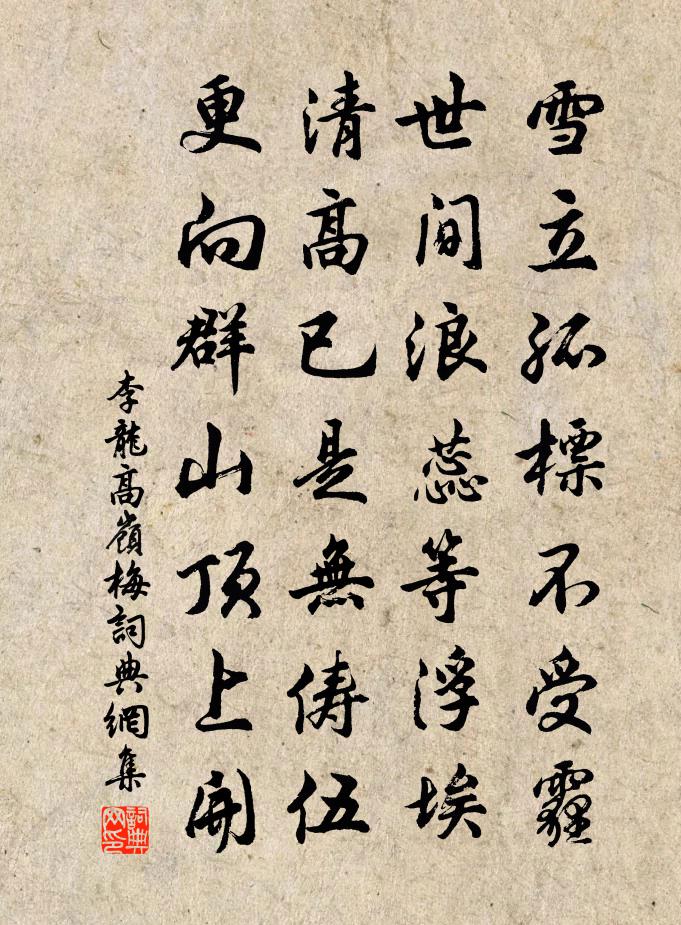 雪立孤標不受霾
世間浪蕊等浮埃
清高已是無儔伍
更向群山頂上開
李龍高嶺梅詞典網集
詞典網印